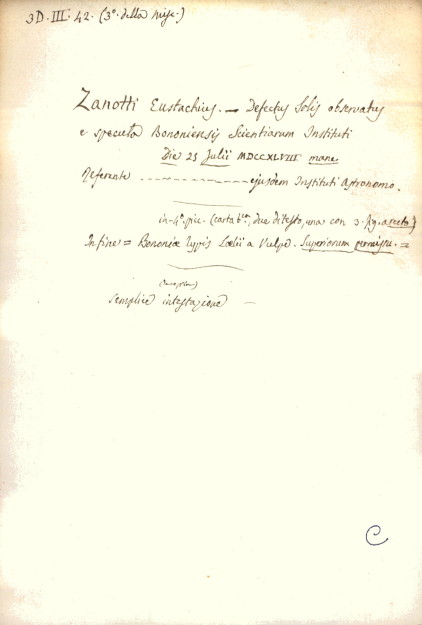 3D. III. 42. (3º. della misc.)
Zanotti Eustachius. — Defectus Solis observatus
e specula Bononiensis Scientiarum Instituti
Die 25 Julii MDCCXLVIII mane
Referente ejusdem Instituti Astronomo.
in-4º. pic. (carta due di testo, una con 3. fig. a recto)
In fine = Bononiæ Typis Lælii a Vulpe. Superiorum permissu. =
semplice intestazione —
C